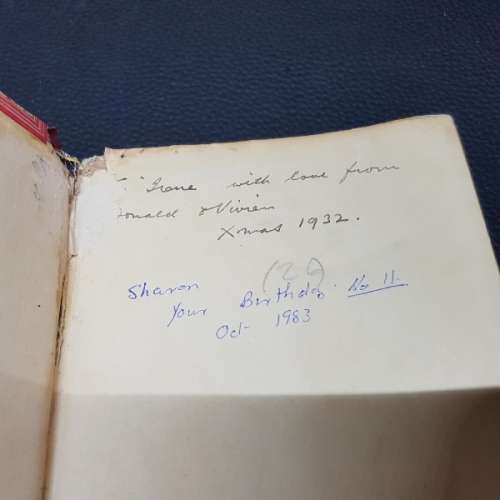 with love from
onald & Vivien
Xmas 1932.
(26)
Sharon
Your Birthday No 11.
Oct 1983